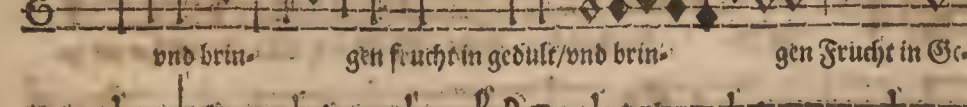 vnd brin⸗ gen frucht in gedult/vnd brin⸗ gen Frucht in Ge⸗